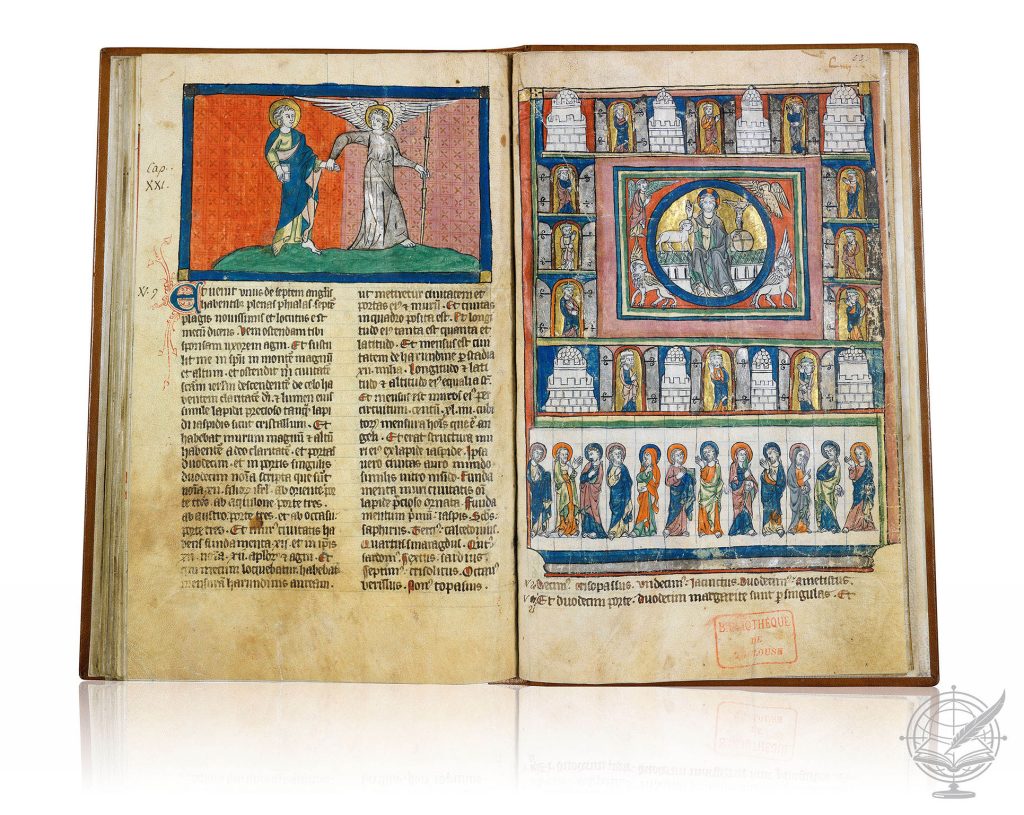 Cap.
XXI.
V. 9
Et venit unus de septem angelis
habentibus plenas phialas septe
plagis novissimis et locutus est
mecu dicens. Veni ostendam tibi
sponsam uxorem agni. Et sustu
lit me in spu in monte magnu
et altum. et ostendit m civitate
scam ierlm descendente de celo ha
bentem claritate di. et lumen eius
simile lapidi precioso tanq lapi
di iaspidis sicut cristallum. Et
habebat murum magnu et altu
habente a deo claritate. et portas
duodecim. et in portis singulis
duodecim noia scripta que sut
noia xii. filior isrl. ab oriente por
te tres. ab aquilone porte tres.
ab austro. porte tres. et ab occasu
porte tres. Et mur civitatis ha
bens fundamenta xii. et in ipis
xii. noia. xii. aplor et agni. Et
qui mecum loquebatur. habebat
mensura harundinis auream.
ut metiretur civitatem et
portas ei et muru. Et civitas
in quadro posita est. Et longi
tudo ei tanta est quanta et
latitudo. Et mensus est civi
tatem de harundine p stadia
xii. milia. Longitudo et lati
tudo et altitudo ei equalia st.
Et mensus est muros ei per
circuitum. centu. xl. iiii. cubi
tor mensura hois que e an
geli. Et erat structura mu
ri ei ex lapide iaspide. Ipsa
vero civitas auro mundo
similis vitro mundo. Funda
menta muri civitatis oi
lapide pcioso ornata. Funda
mentum pmu. iaspis. Scds.
saphirus. Terci. calcedonius.
Quartus smaragdus. Quit.
sardoni. Sextus. sardius.
Septim. crisolitus. Octav.
berillus. Non. topasius.
63.
Decim. crisopassus. Undecim. Jacinctus. Duodecim. ametistus.
Et duodecim porte. duodecim margarite sunt p singulas. Et
BIBLIOTHÈQUE
DE
TOULOUSE